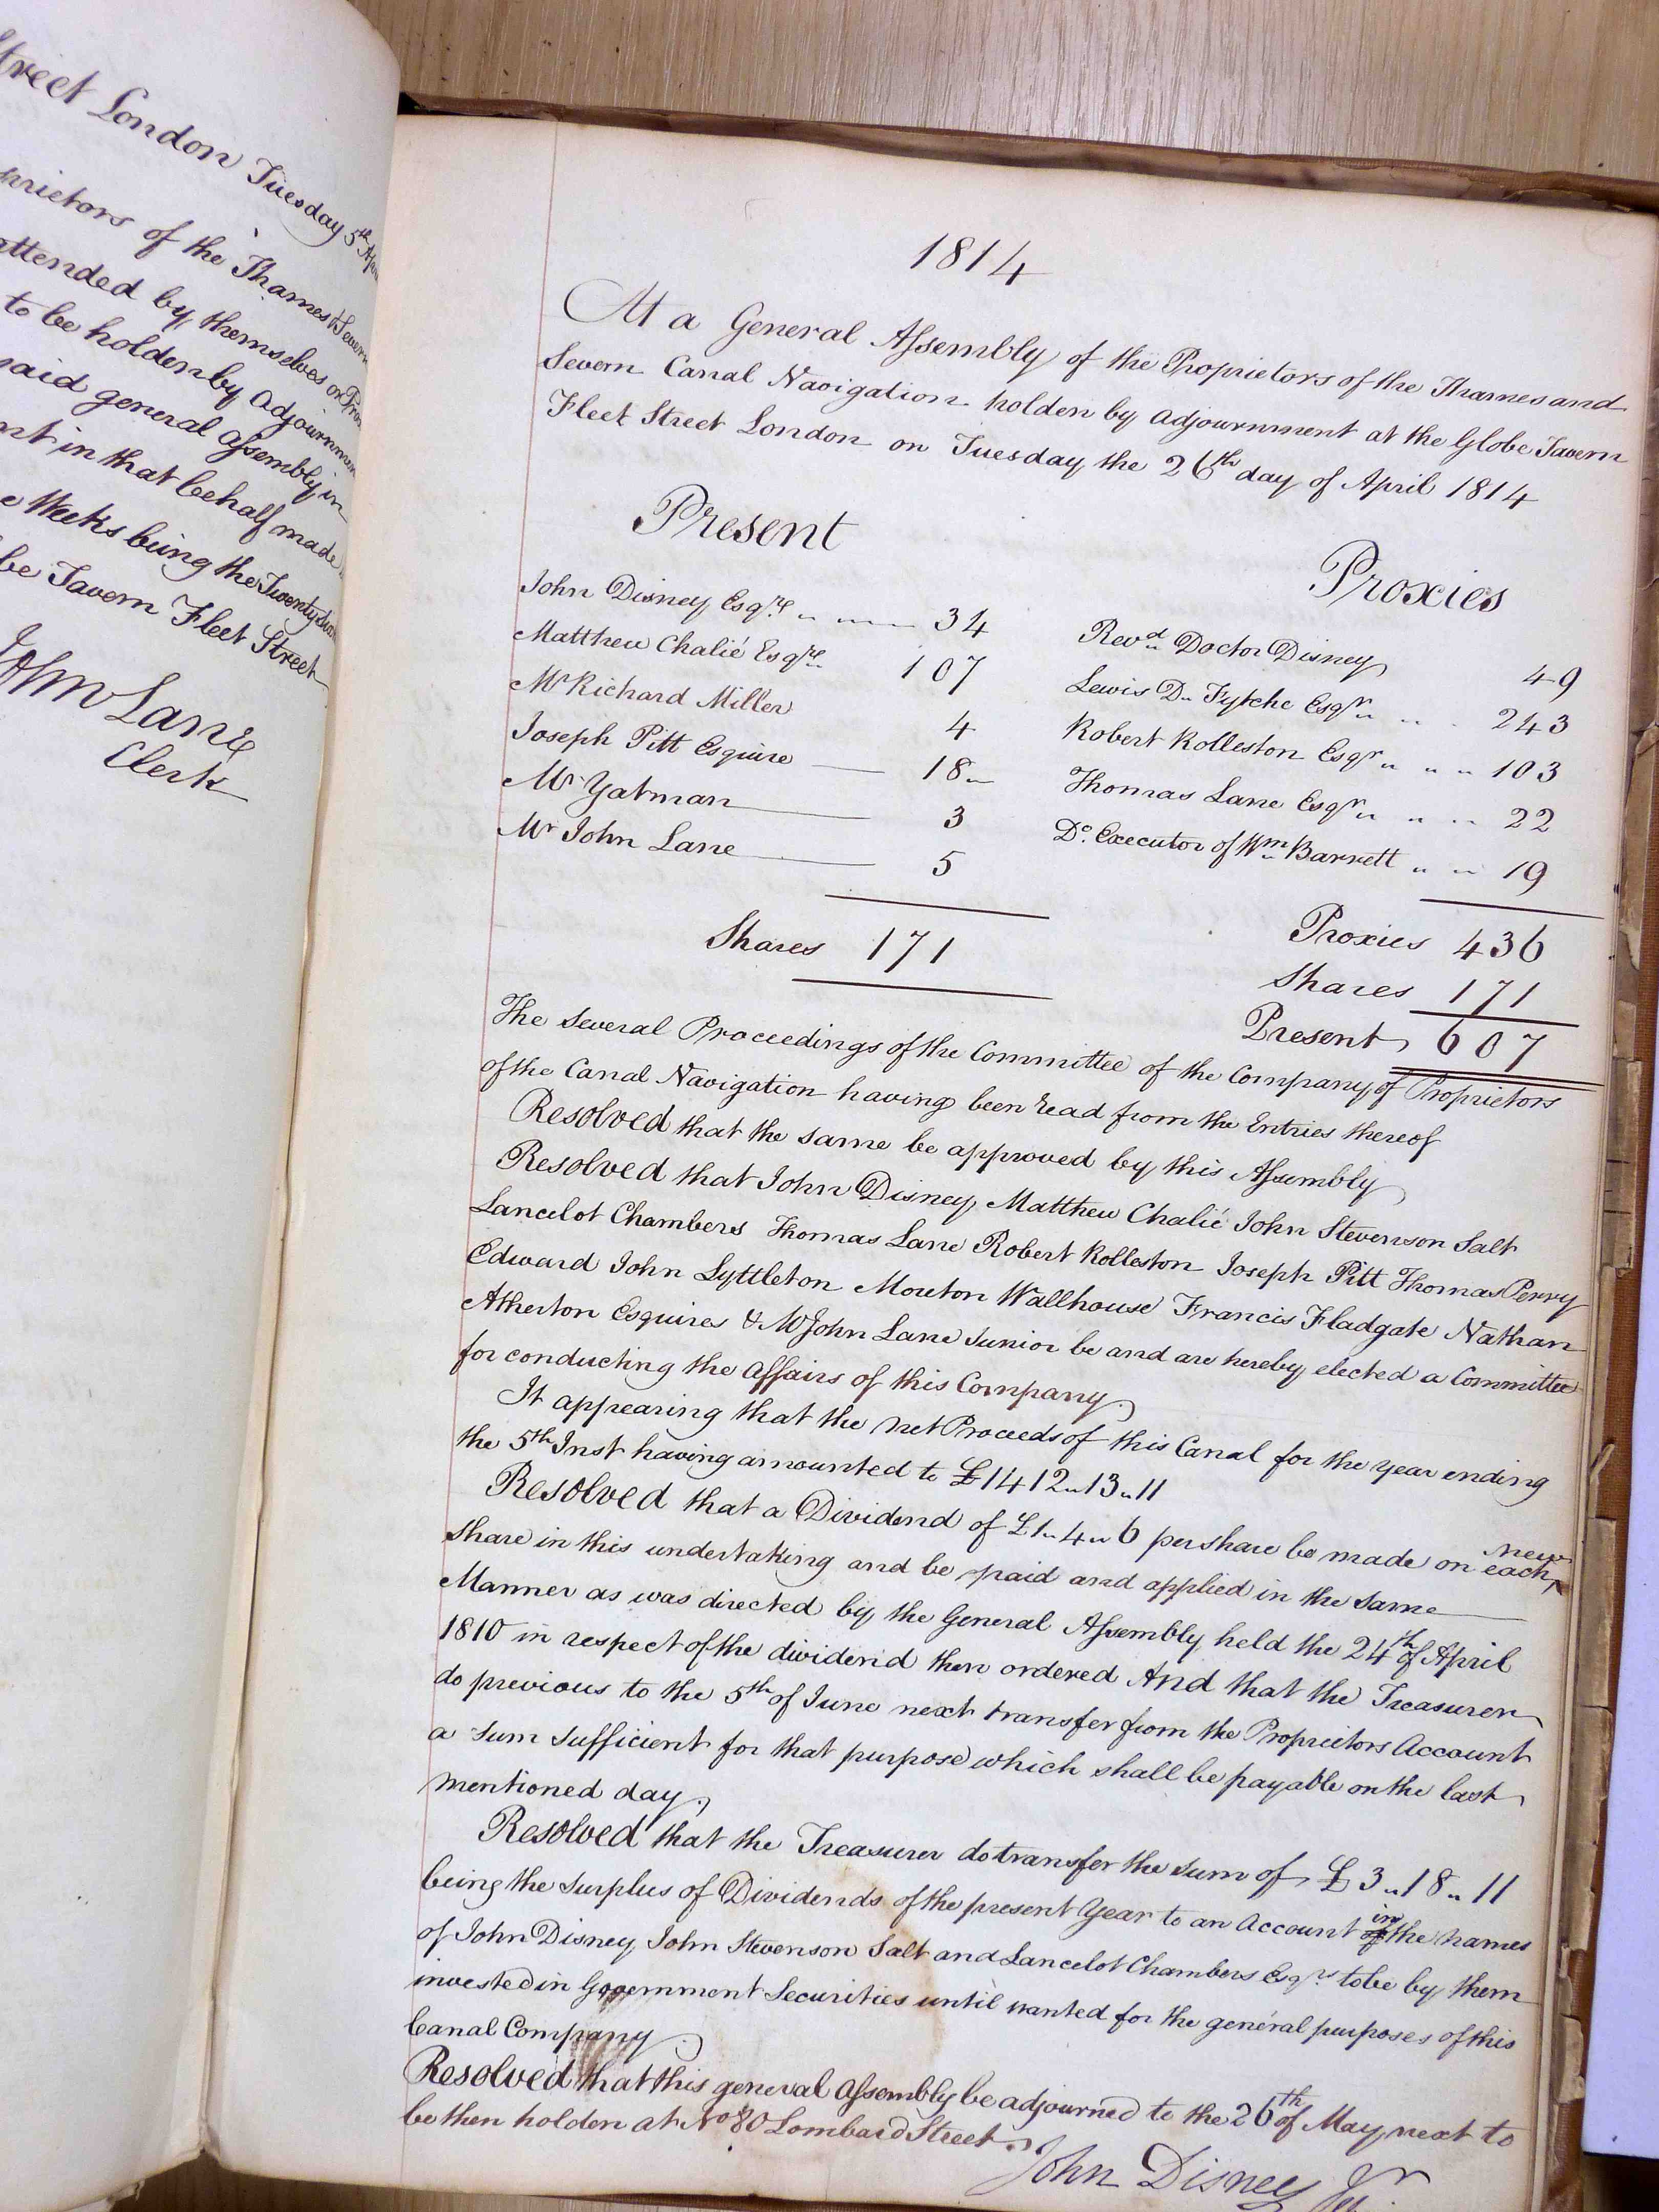 treet London Tuesday 5th
prietors of the Thames & Severn
attended by themselves or
to be holden by adjournmen
said general assembly in
nt in that behalf made
e Weeks being the Twenty
be Tavern Fleet Street
John Lane
Clerk
1814
At a General Assembly of the Proprietors of the Thames and
Severn Canal Navigation holden by adjournment at the Globe Tavern
Fleet Street London on Tuesday the 26th day of April 1814
Present
John Disney Esqre 34
Matthew Chalié Esqre 107
Mr Richard Miller 4
Joseph Pitt Esquire 18
Mr Yatman 3
Mr John Lane 5
Shares 171
Proxies
Revd Doctor Disney 49
Lewis D. Fytche Esqr 243
Robert Rolleston Esqr 103
Thomas Lane Esqr 22
Do. Executor of Wm Barrett 19
Proxies 436
Shares 171
Present 607
The Several Proceedings of the Committee of the Company of Proprietors
of the Canal Navigation having been read from the Entries thereof
Resolved that the same be approved by this Assembly
Resolved that John Disney Matthew Chalié John Stevenson Salt
Lancelot Chambers Thomas Lane Robert Rolleston Joseph Pitt Thomas Perry
Edward John Lyttleton Mouton Wallhouse Francis Fladgate Nathan
Atherton Esquires & Mr John Lane Junior be and are hereby elected a Committee
for conducting the affairs of this Company
It appearing that the net Proceeds of this Canal for the year ending
the 5th Inst having amounted to £1412 13 11
Resolved that a Dividend of £1 4 6 per share be made on each new
share in this undertaking and be paid and applied in the same
Manner as was directed by the General Assembly held the 24th of April
1810 in respect of the dividend then ordered And that the Treasurer
do previous to the 5th of June next transfer from the Proprietors Account
a sum sufficient for that purpose which shall be payable on the last
mentioned day
Resolved that the Treasurer do transfer the sum of £3 18 11
being the surplus of Dividends of the present Year to an Account in the names
of John Disney John Stevenson Salt and Lancelot Chambers Esqrs to be by them
invested in Government Securities until wanted for the general purposes of this
Canal Company
Resolved that this general assembly be adjourned to the 26th of May next to
be then holden at No 80 Lombard Street
John Disney Jr